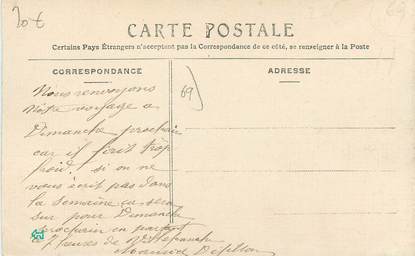 20 €
CARTE POSTALE
Certains Pays Étrangers n'acceptent pas la Correspondance de ce côté, se renseigner à la Poste
CORRESPONDANCE
ADRESSE
69)
Nous renvoyons
Notre voyage a
Dimanche prochain
car il fait trop
froid. si on ne
vous écrit pas dans
la semaine ça sera
sur pour Dimanche
prochain en partant
a 7 heures de Villefranche